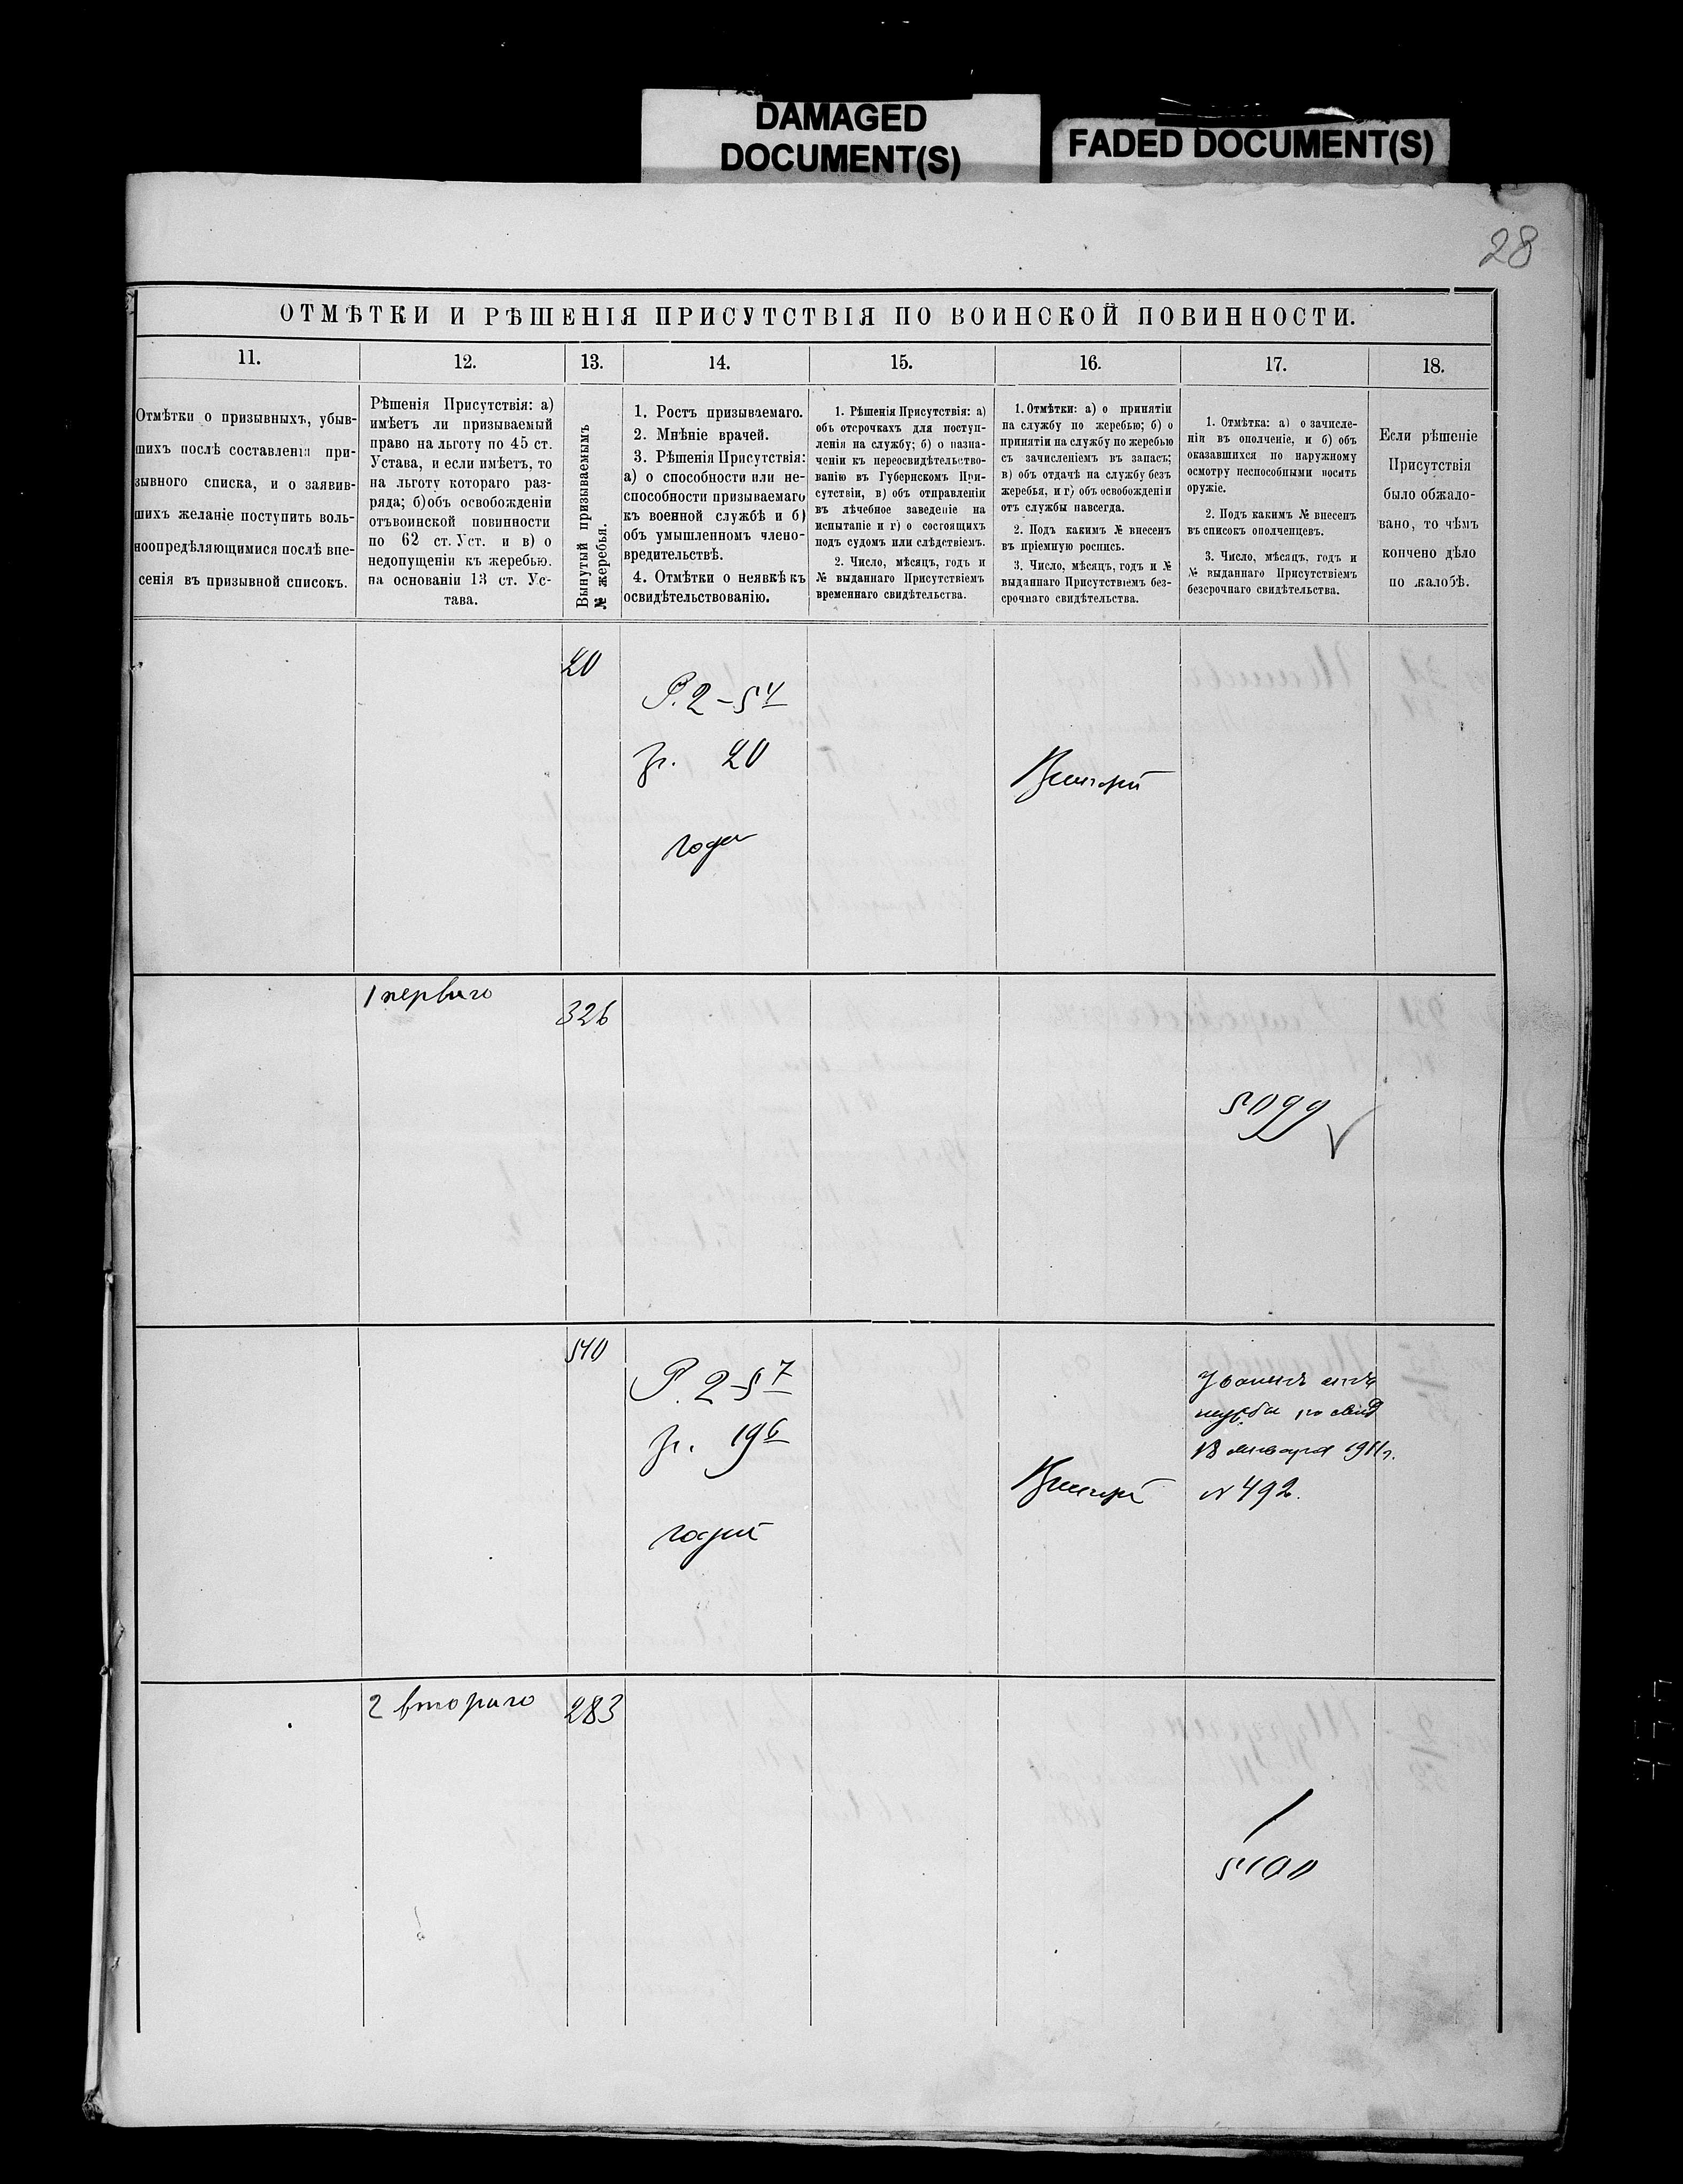 DAMAGED
DOCUMENT(S)
FADED DOCUMENT(S)
28
ОТМѢТКИ И РѢШЕНІЯ ПРИСУТСТВІЯ ПО ВОИНСКОЙ ПОВИННОСТИ.
11.
12.
13.
14.
15.
16.
17.
18.
Отмѣтки о призывныхъ, убыв-
шихъ послѣ составленія при-
зывного списка, и о заявив-
шихъ желаніе поступить воль-
ноопредѣляющимися послѣ вне-
сенія въ призывной списокъ.
Рѣшенія Присутствія: а)
имѣетъ ли призываемый
право на льготу по 45 ст.
Устава, и если имѣетъ, то
на льготу котораго раз-
ряда; б) объ освобожденіи
отъ воинской повинности
по 62 ст. Уст. и в) о
недопущеніи къ жеребью.
на основаніи 13 ст. Ус-
тава.
Вынутый призываемымъ
№ жеребья.
1. Ростъ призываемаго.
2. Мнѣніе врачей.
3. Рѣшенія Присутствія:
а) о способности или не-
способности призываемаго
къ военной службѣ и б)
объ умышленномъ члено-
вредительствѣ.
4. Отмѣтки о неявкѣ къ
освидѣтельствованію.
1. Рѣшенія Присутствія: а)
объ отсрочкахъ для поступ-
ленія на службу; б) о назна-
ченіи къ переосвидѣтельство-
ванію въ Губернскомъ При-
сутствіи, в) объ отправленіи
въ лѣчебное заведеніе на
испытаніе и г) о состоящихъ
подъ судомъ или слѣдствіемъ.
2. Число, мѣсяцъ, годъ и
№ выданнаго Присутствіемъ
временнаго свидѣтельства.
1. Отмѣтки: а) о принятіи
на службу по жеребью; б) о
принятіи на службу по жеребью
съ зачисленіемъ въ запасъ;
в) объ отдачѣ на службу безъ
жеребья, и г) объ освобожденіи
отъ службы навсегда.
2. Подъ какимъ № внесенъ
въ пріемную роспись.
3. Число, мѣсяцъ, годъ и №
выданнаго Присутствіемъ без-
срочнаго свидѣтельства.
1. Отмѣтка: а) о зачисле-
ніи въ ополченіе, и б) объ
оказавшихся по наружному
осмотру неспособными носить
оружіе.
2. Подъ какимъ № внесенъ
въ списокъ ополченцевъ.
3. Число, мѣсяцъ, годъ и
№ выданнаго Присутствіемъ
безсрочнаго свидѣтельства.
Если рѣшеніе
Присутствія
было обжало-
вано, то чѣмъ
кончено дѣло
по жалобѣ.
20
Р. 2-5 4
гр. 20
1 перваго
326
5099
540
Р. 2-5 7
гр. 19 6
годен
Уволенъ отъ
службы по свид
18 января 1911 г.
№ 492.
2 втораго
283
5100